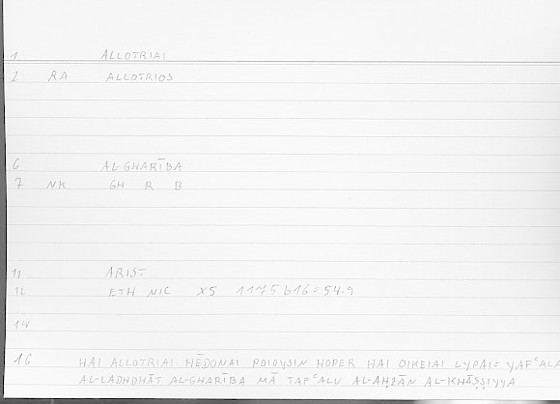 1 ALLOTRIAI
2 RA ALLOTRIOS
6 AL-GHARĪBA
7 NK GH R B
11 ARIST
12 ETH NIC X5 1175 b16 = 54.9
14
16 HAI ALLOTRIAI HĒDONAI POIOYSIN HOPER HAI OIKEIAI LYPAI = YAFᶜALA
AL-LADHDHĀT AL-GHARĪBA MĀ TAFᶜALU AL-AḤZĀN AL-KHĀṢṢIYYA